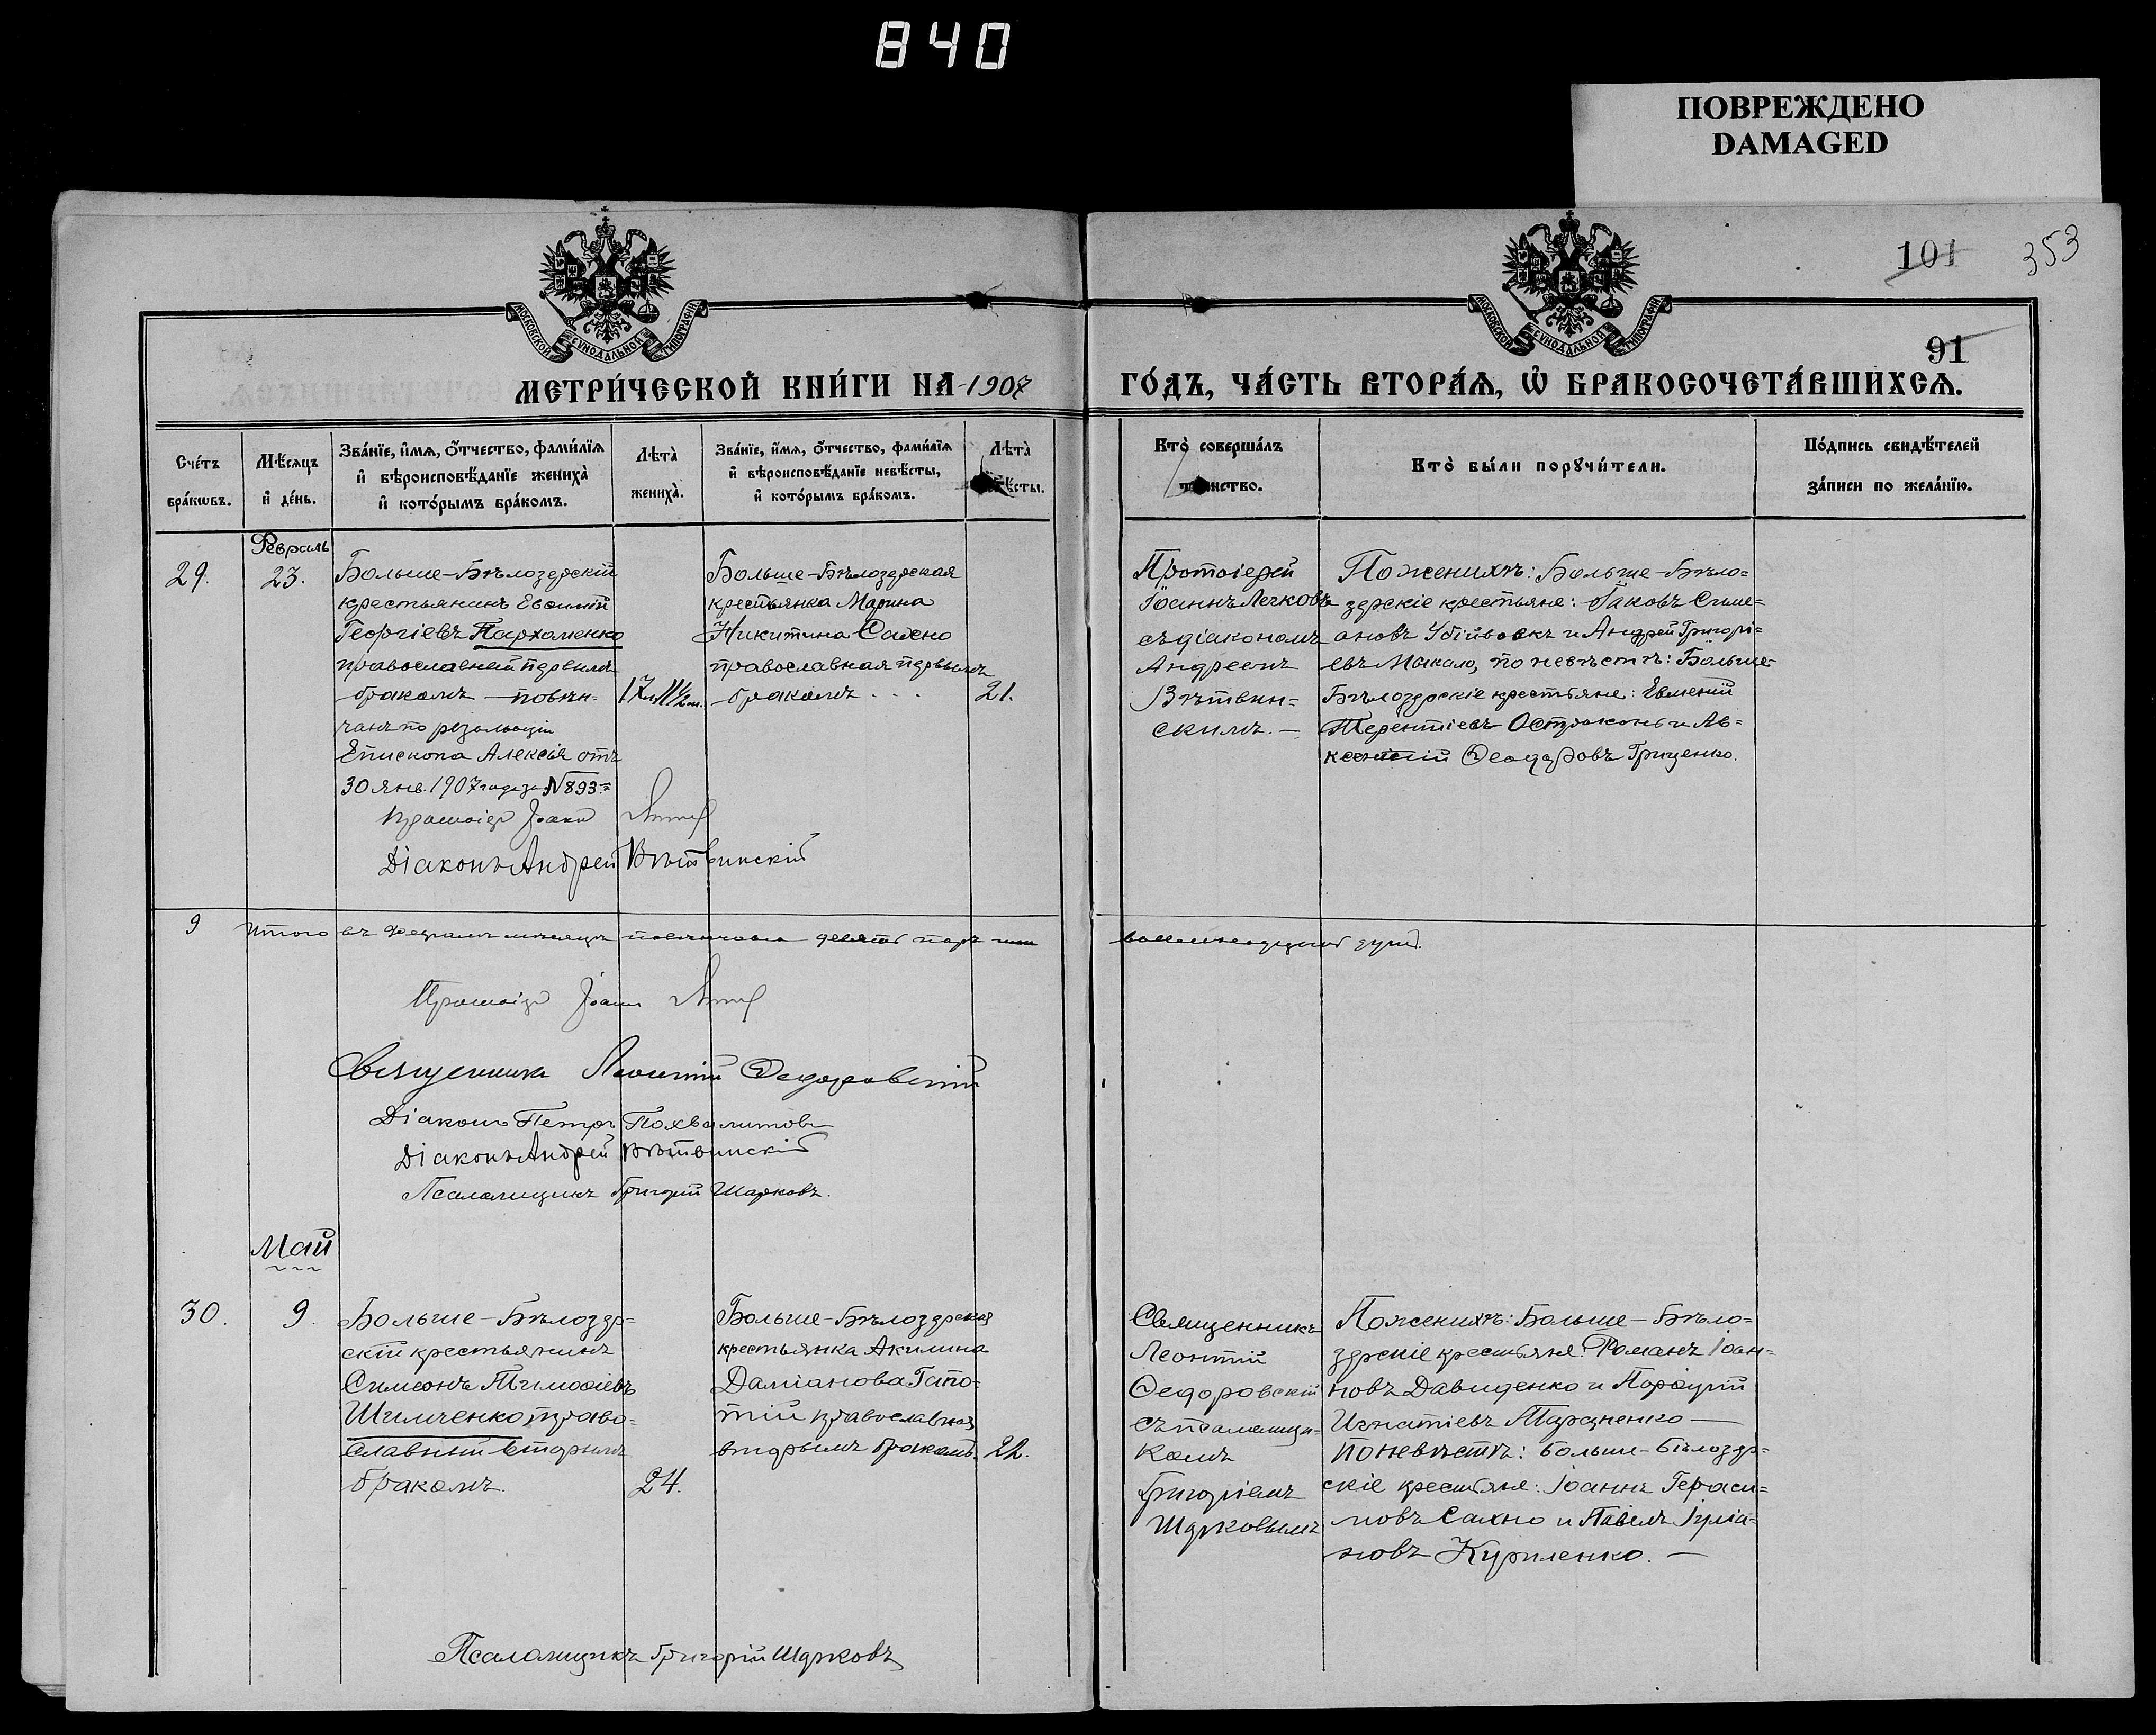 840
ПОВРЕЖДЕНО
DAMAGED
101
353
91
МОСКОВСКОЙ СѴНОДАЛЬНОЙ ТИПОГРАФІИ
МОСКОВСКОЙ СѴНОДАЛЬНОЙ ТИПОГРАФІИ
МЕТРИ́ЧЕСКОЙ КНИ́ГИ НА 1907
ГО́ДЪ, ЧА́СТЬ ВТОРА́Я, Ѡ БРАКОСОЧЕТА́ВШИХСЯ.
Сче́тъ
бра́кѡвъ.
Мѣ́сяцъ
и де́нь.
Зва́нїе, и́мя, ѻ́тчество, фами́лїя
и вѣроисповѣ́данїе жениха̀
и кото́рымъ бра́комъ.
Лѣта̀
жениха̀.
Зва́нїе, и́мя, ѻ́тчество, фами́лїя
и вѣроисповѣ́данїе невѣ́сты,
и кото́рымъ бра́комъ.
Лѣта̀
Кто̀ соверша́лъ
Кто̀ бы́ли порꙋчи́тели.
По́дпись свидѣ́телей
за́писи по жела́нїю.
Февраль
29.
23.
Больше-Бѣлозерскій
крестьянинъ Евѳимій
Георгіевъ Пархоменко
православный первымъ
бракомъ – повѣн-
чанъ по резолюціи
Епископа Алексія отъ
30 янв. 1907 года за №893.
17 л. 11½ м.
Больше-Бѣлозерская
крестьянка Марина
Никитина
православная первымъ
бракомъ . . .
21.
Протоіерей
Іоаннъ
съ діакономъ
Андреемъ
Вѣтвин-
скимъ. –
По женихѣ: Больше-Бѣло=
зерскіе крестьяне: Іаковъ Симе=
оновъ и Андрей Григорі=
евъ по невѣстѣ: Больше-
Бѣлозерскіе крестьяне: Евменій
Терентіевъ и Ав=
ксентій Ѳеодоровъ Гриценко.
Протоіер Іоаннъ
Діаконъ Андрей Вѣтвинскій
9 Итого въ Февралѣ мѣсяцѣ повѣнчано девять паръ или
восемнадцать душъ.
Протоіер Іоаннъ
Священникъ Леонтій Ѳедоровскій
Діаконъ Петръ Похвалитовъ
Діаконъ Андрей Вѣтвинскій
Псаломщикъ Григорій Шарковъ.
Май
30.
9.
Больше-Бѣлозер=
скій крестьянинъ
Симеонъ Тимоѳіевъ
Шимченко право=
славный вторымъ
бракомъ.
24.
Больше-Бѣлозерская
крестьянка Акилина
Даміанова Гапо-
тій православная
вторымъ бракомъ.
22.
Священникъ
Леонтій
Ѳедоровскій
съ псаломщи=
комъ
Григоріемъ
Шарковымъ
По женихѣ: Больше-Бѣло=
зерскіе крестьяне: Романъ Іоан-
новъ Давиденко и Порфирій
Игнатіевъ Тараненко –
По невѣстѣ: Больше-Бѣлозер=
скіе крестьяне: Іоаннъ Гераси=
мовъ Сахно и Павелъ Іуліа-
новъ Куриленко. –
Псаломщикъ Григорій Шарковъ